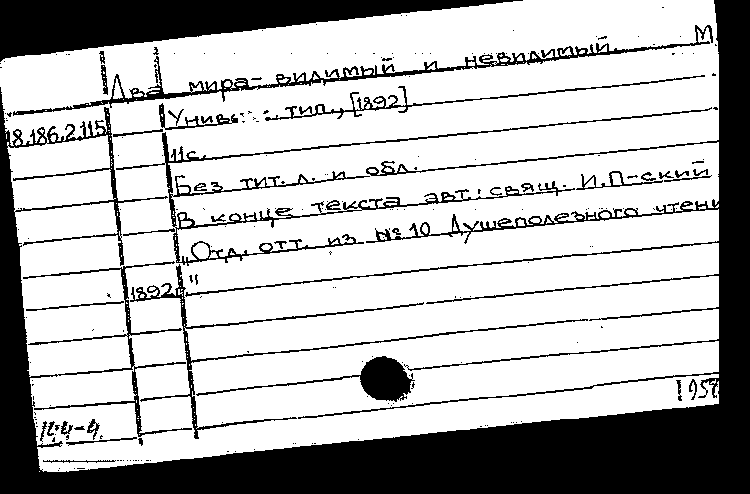 Два мира- видимый и невидимый. М
Унив. : тип., [1892]
18.186.2.115
11с.
Без тит. л. и обл.
В конце текста авт.: свящ. И.П-ский
„Отд. отт. из №10 Душеполезного чтени
1892г."
1957
144-4